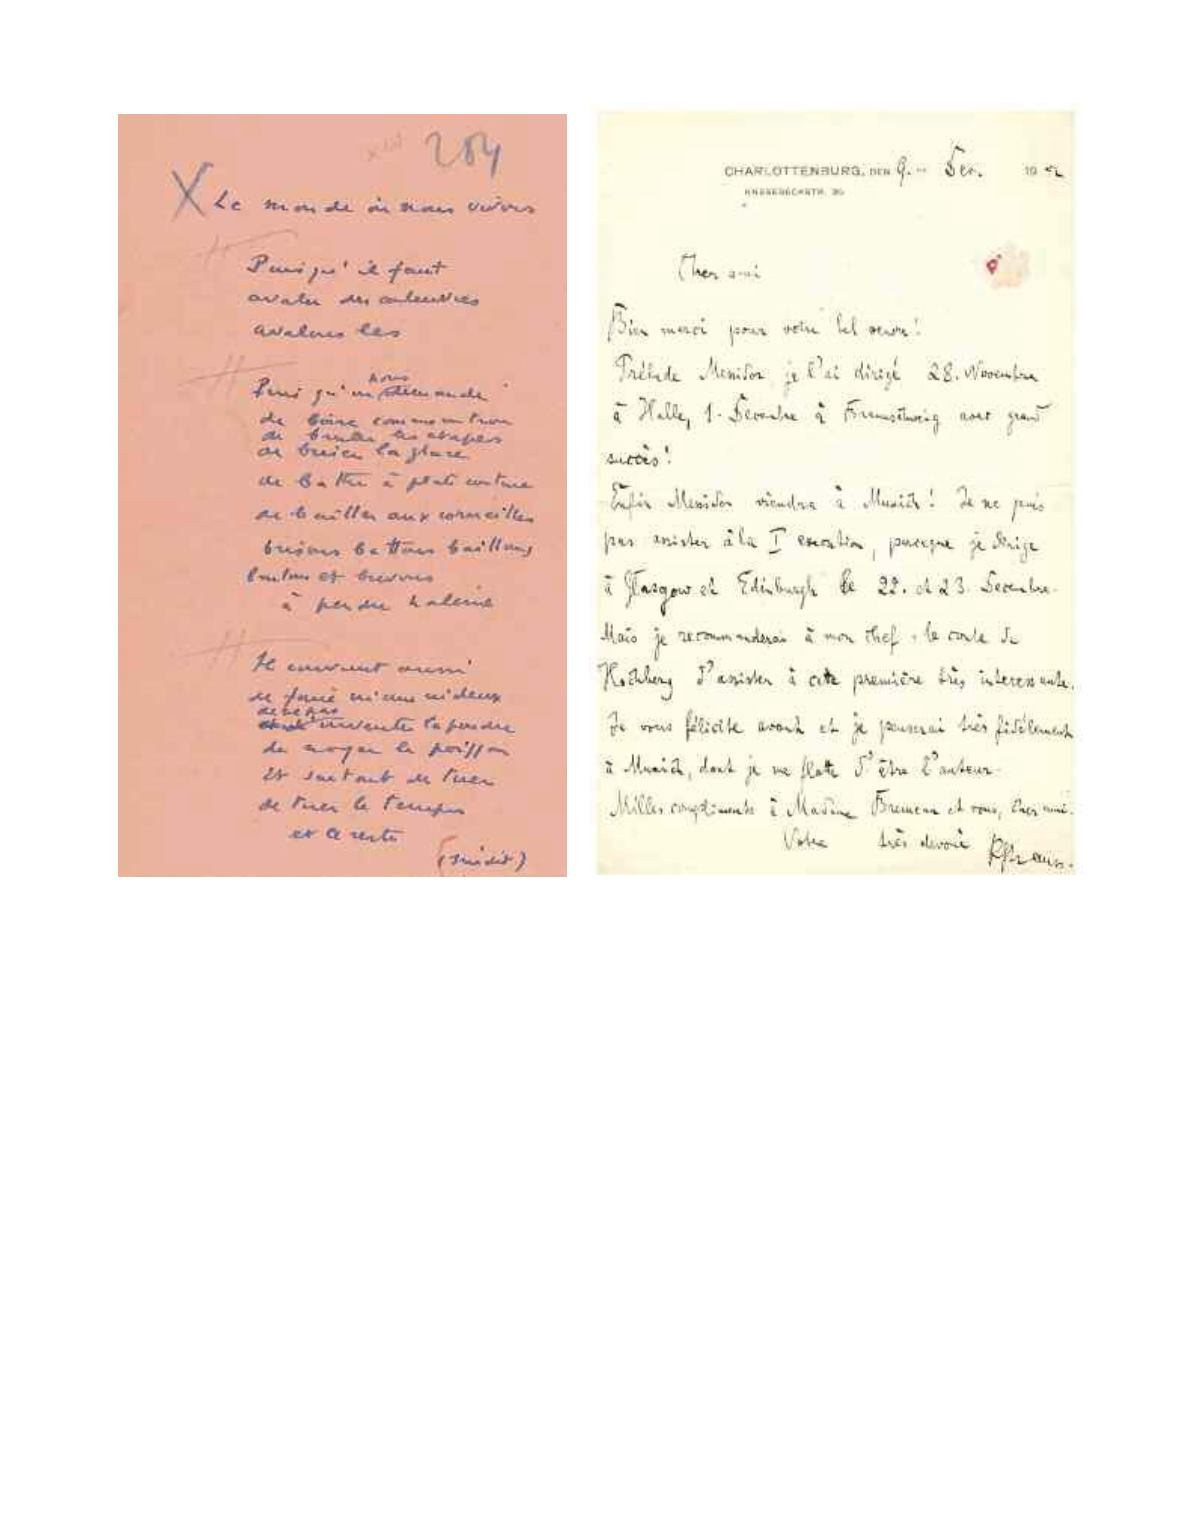 284
X Le monde où nous vivons
Puisqu'il faut
avaler des couleuvres
avalons les
Puisqu'on nous demande
de boire comme un trou
de bruler les étapes
de briser la glace
de battre à plate couture
de bailler aux corneilles
brisons battons baillons
brulons et buvons
à perdre haleine
Il convient aussi
de faire ni une ni deux
de ne pas
inventer la poudre
de noyer le poisson
Et surtout de tuer
de tuer le temps
et le reste
(inédit)
CHARLOTTENBURG, DEN 9. Dec. 190
KNESEBECKSTR. 30.
Cher ami
Bien merci pour votre bel oeuvre!
Prélude Messidor, je l'ai dirigé 28. Novembre
à Halle, 1. Decembre à Braunschweig avec grand
succès!
Enfin Messidor viendra à Munich! Je ne puis
pas assister à la I execution, parceque je dirige
à Glasgow et Edinburgh le 22. et 23. Decembre.
Mais je recommanderai à mon chef, le conte de
Hochberg d'assister à cette première très interessante.
Je vous félicite avant et je penserai très fidèlement
à Munich, dont je me flatte d'être l'auteur.
Milles compliments à Madame Bruneau et vous, cher ami.
Votre très devoué RStrauss.